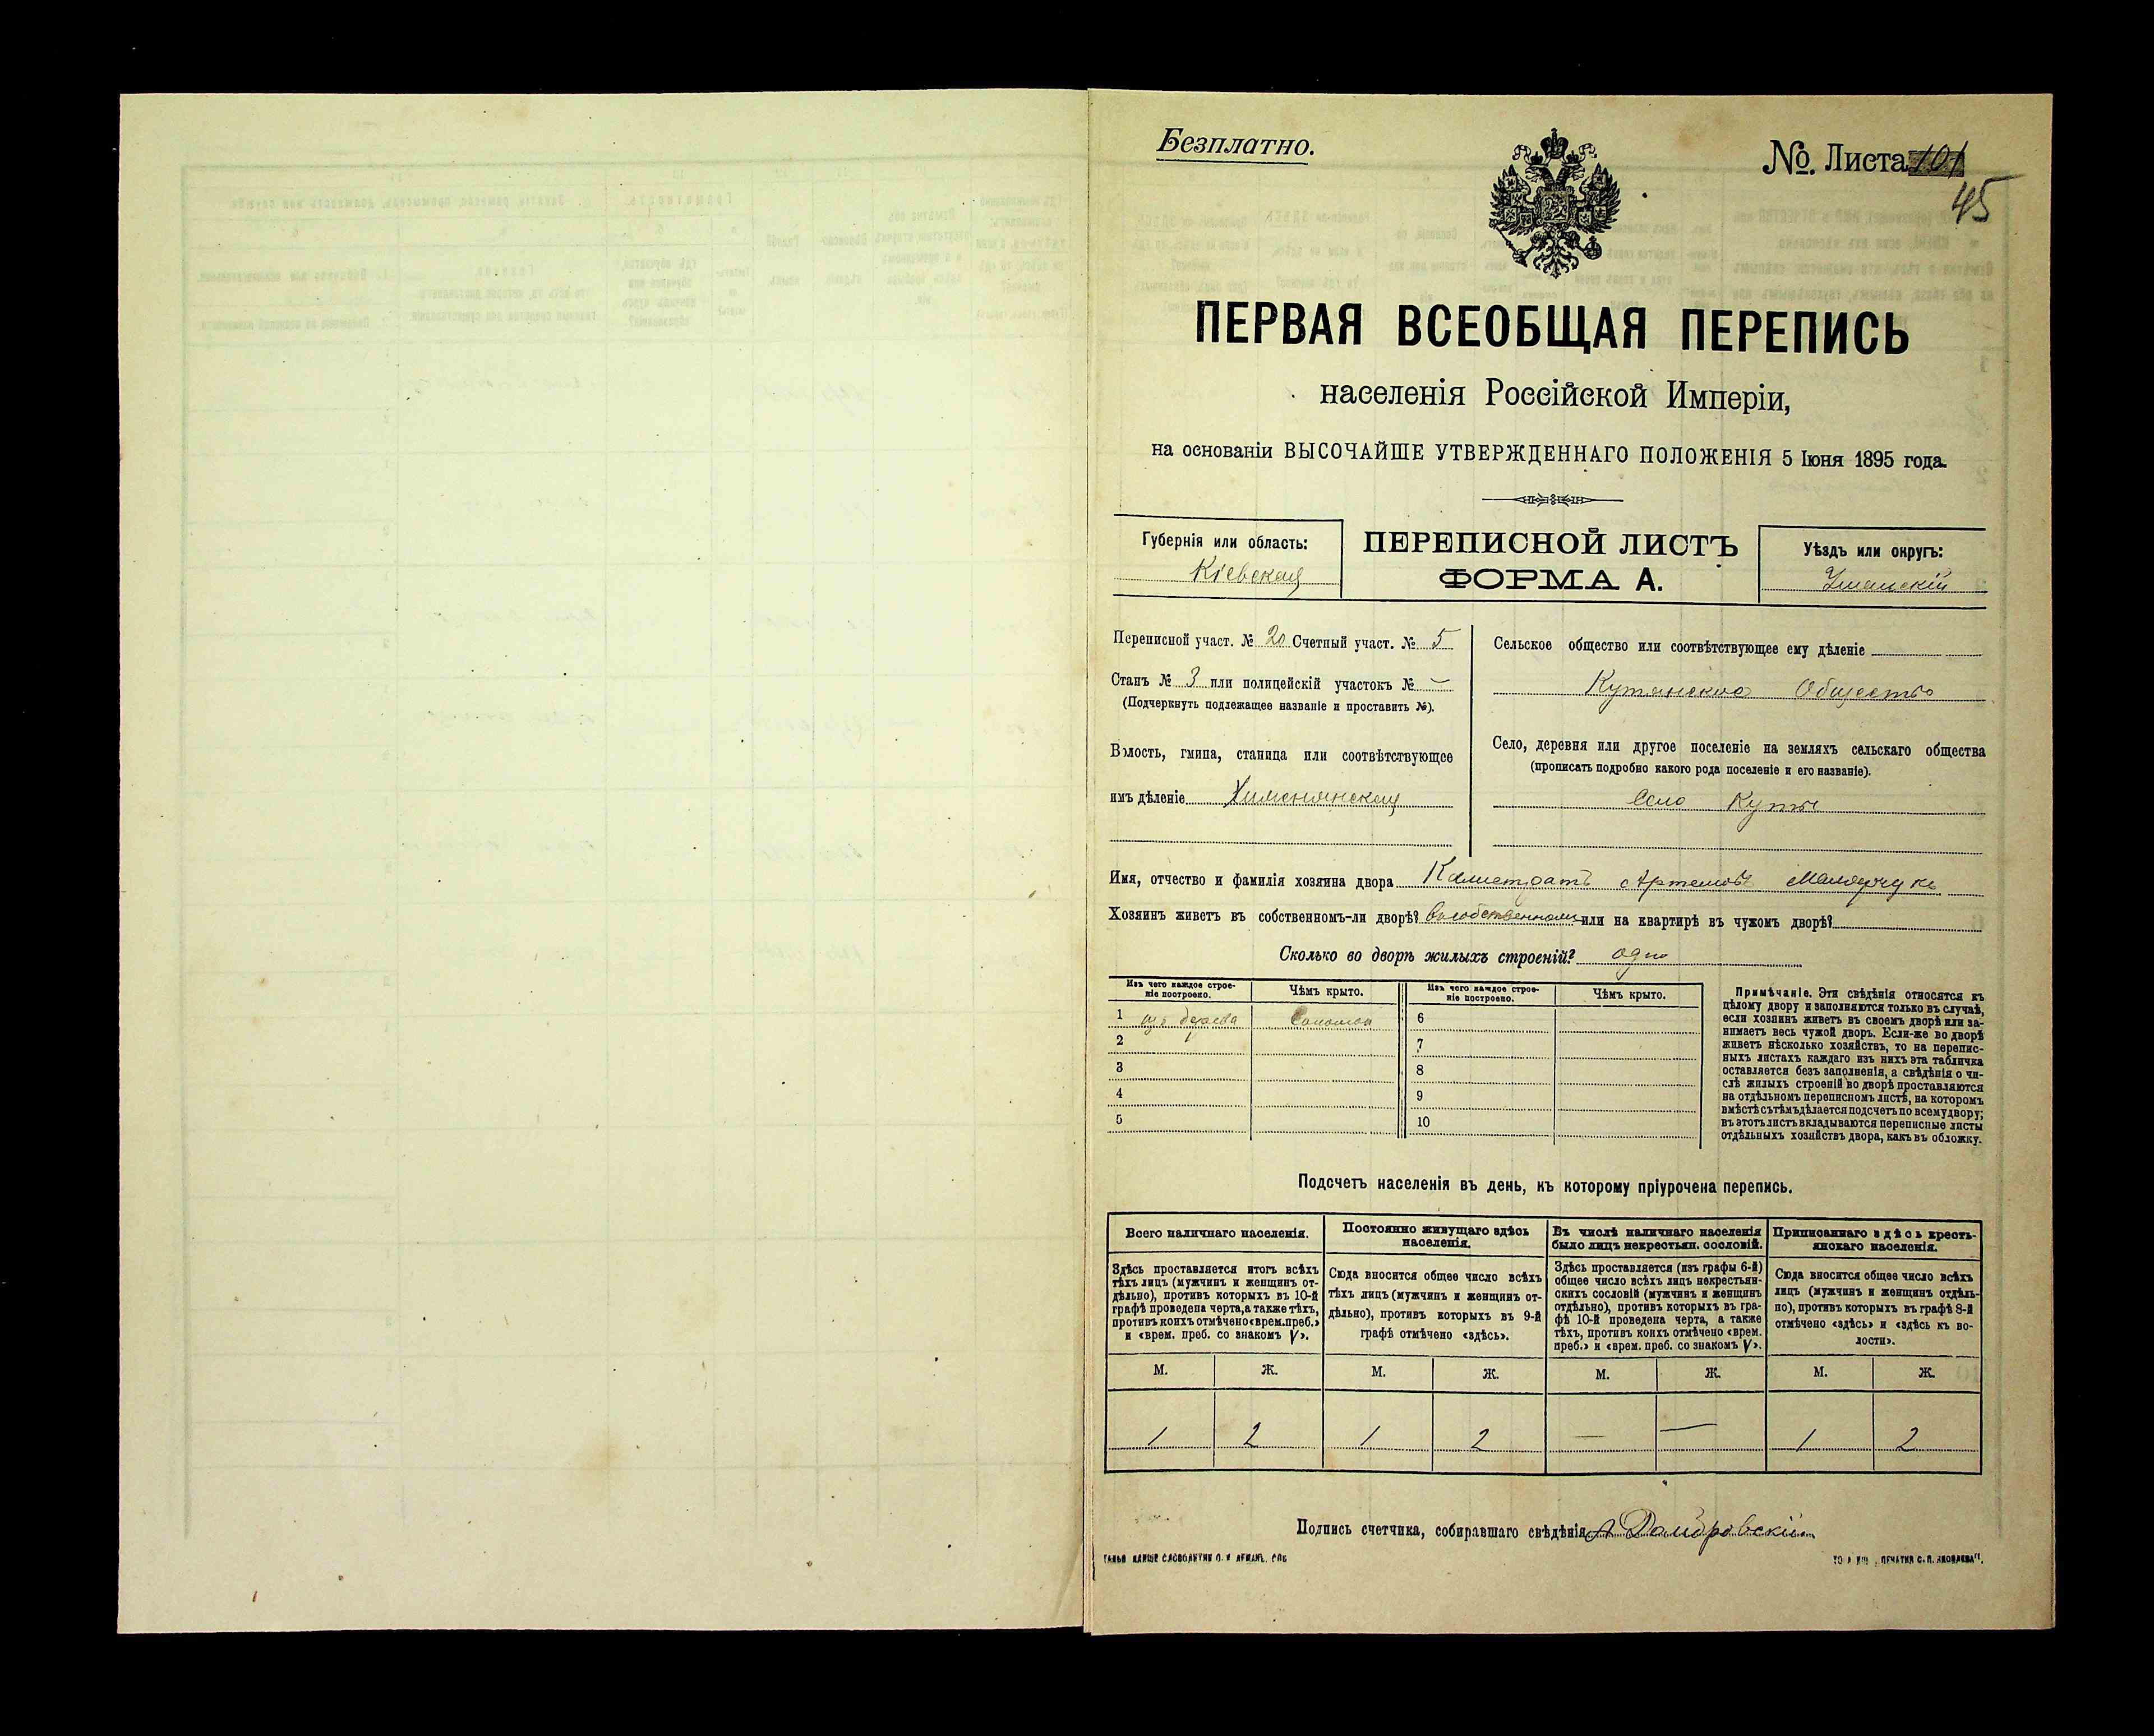 Безплатно.
№. Листа 101
45
ПЕРВАЯ ВСЕОБЩАЯ ПЕРЕПИСЬ
населенія Россійской Имперіи,
на основаніи ВЫСОЧАЙШЕ УТВЕРЖДЕННАГО ПОЛОЖЕНІЯ 5 Іюня 1895 года.
Губернія или область:
Кіевская
ПЕРЕПИСНОЙ ЛИСТЪ
ФОРМА А.
Уѣздъ или округъ:
Уманскій
Переписной участ. № 20 Счетный участ. № 5
Станъ № 3 или полицейскій участокъ № —
(Подчеркнуть подлежащее названіе и проставить №).
Волость, гмина, станица или соотвѣтствующее
имъ дѣленіе
Сельское общество или соотвѣтствующее ему дѣленіе
Кутянское Общество
Село, деревня или другое поселеніе на земляхъ сельскаго общества
(прописать подробно какого рода поселеніе и его названіе).
Село Куты
Имя, отчество и фамилія хозяина двора Калистратъ Артемовъ
Хозяинъ живетъ въ собственномъ-ли дворѣ? Въ собственномъ или на квартирѣ въ чужомъ дворѣ?
Сколько во дворѣ жилыхъ строеній? одно
Изъ чего каждое строе-
ніе построено.
Чѣмъ крыто.
Изъ чего каждое строе-
ніе построено.
Чѣмъ крыто.
1 изъ дерева Соломой
2
3
4
5
6
7
8
9
10
Примѣчаніе. Эти свѣдѣнія относятся къ
цѣлому двору и заполняются только въ случаѣ,
если хозяинъ живетъ въ своемъ дворѣ или за-
нимаетъ весь чужой дворъ. Если-же во дворѣ
живетъ нѣсколько хозяйствъ, то на перепис-
ныхъ листахъ каждаго изъ нихъ эта табличка
оставляется безъ заполненія, а свѣдѣнія о чи-
слѣ жилыхъ строеній во дворѣ проставляются
на отдѣльномъ переписномъ листѣ, на которомъ
вмѣстѣ съ тѣмъ дѣлается подсчетъ по всему двору;
въ этотъ листъ вкладываются переписные листы
отдѣльныхъ хозяйствъ двора, какъ въ обложку.
Подсчетъ населенія въ день, къ которому пріурочена перепись.
Всего наличнаго населенія.
Здѣсь проставляется итогъ всѣхъ
тѣхъ лицъ (мужчинъ и женщинъ от-
дѣльно), противъ которыхъ въ 10-й
графѣ проведена черта, а также тѣхъ,
противъ коихъ отмѣчено «врем. преб.»
и «врем. преб. со знакомъ V».
Постоянно живущаго здѣсь
населенія.
Сюда вносится общее число всѣхъ
тѣхъ лицъ (мужчинъ и женщинъ от-
дѣльно), противъ которыхъ въ 9-й
графѣ отмѣчено «здѣсь».
Въ числѣ наличнаго населенія
было лицъ некрестьян. сословій.
Здѣсь проставляется (изъ графы 6-й)
общее число всѣхъ лицъ некрестьян-
скихъ сословій (мужчинъ и женщинъ
отдѣльно), противъ которыхъ въ гра-
фѣ 10-й проведена черта, а также
тѣхъ, противъ коихъ отмѣчено «врем.
преб.» и «врем. преб. со знакомъ V».
Приписаннаго здѣсь кресть-
янскаго населенія.
Сюда вносится общее число всѣхъ
лицъ (мужчинъ и женщинъ отдѣль-
но), противъ которыхъ въ графѣ 8-й
отмѣчено «здѣсь» и «здѣсь къ во-
лости».
М. Ж. М. Ж. М. Ж. М. Ж.
1 2 1 2 — — 1 2
Подпись счетчика, собиравшаго свѣдѣнія А Домбровскій